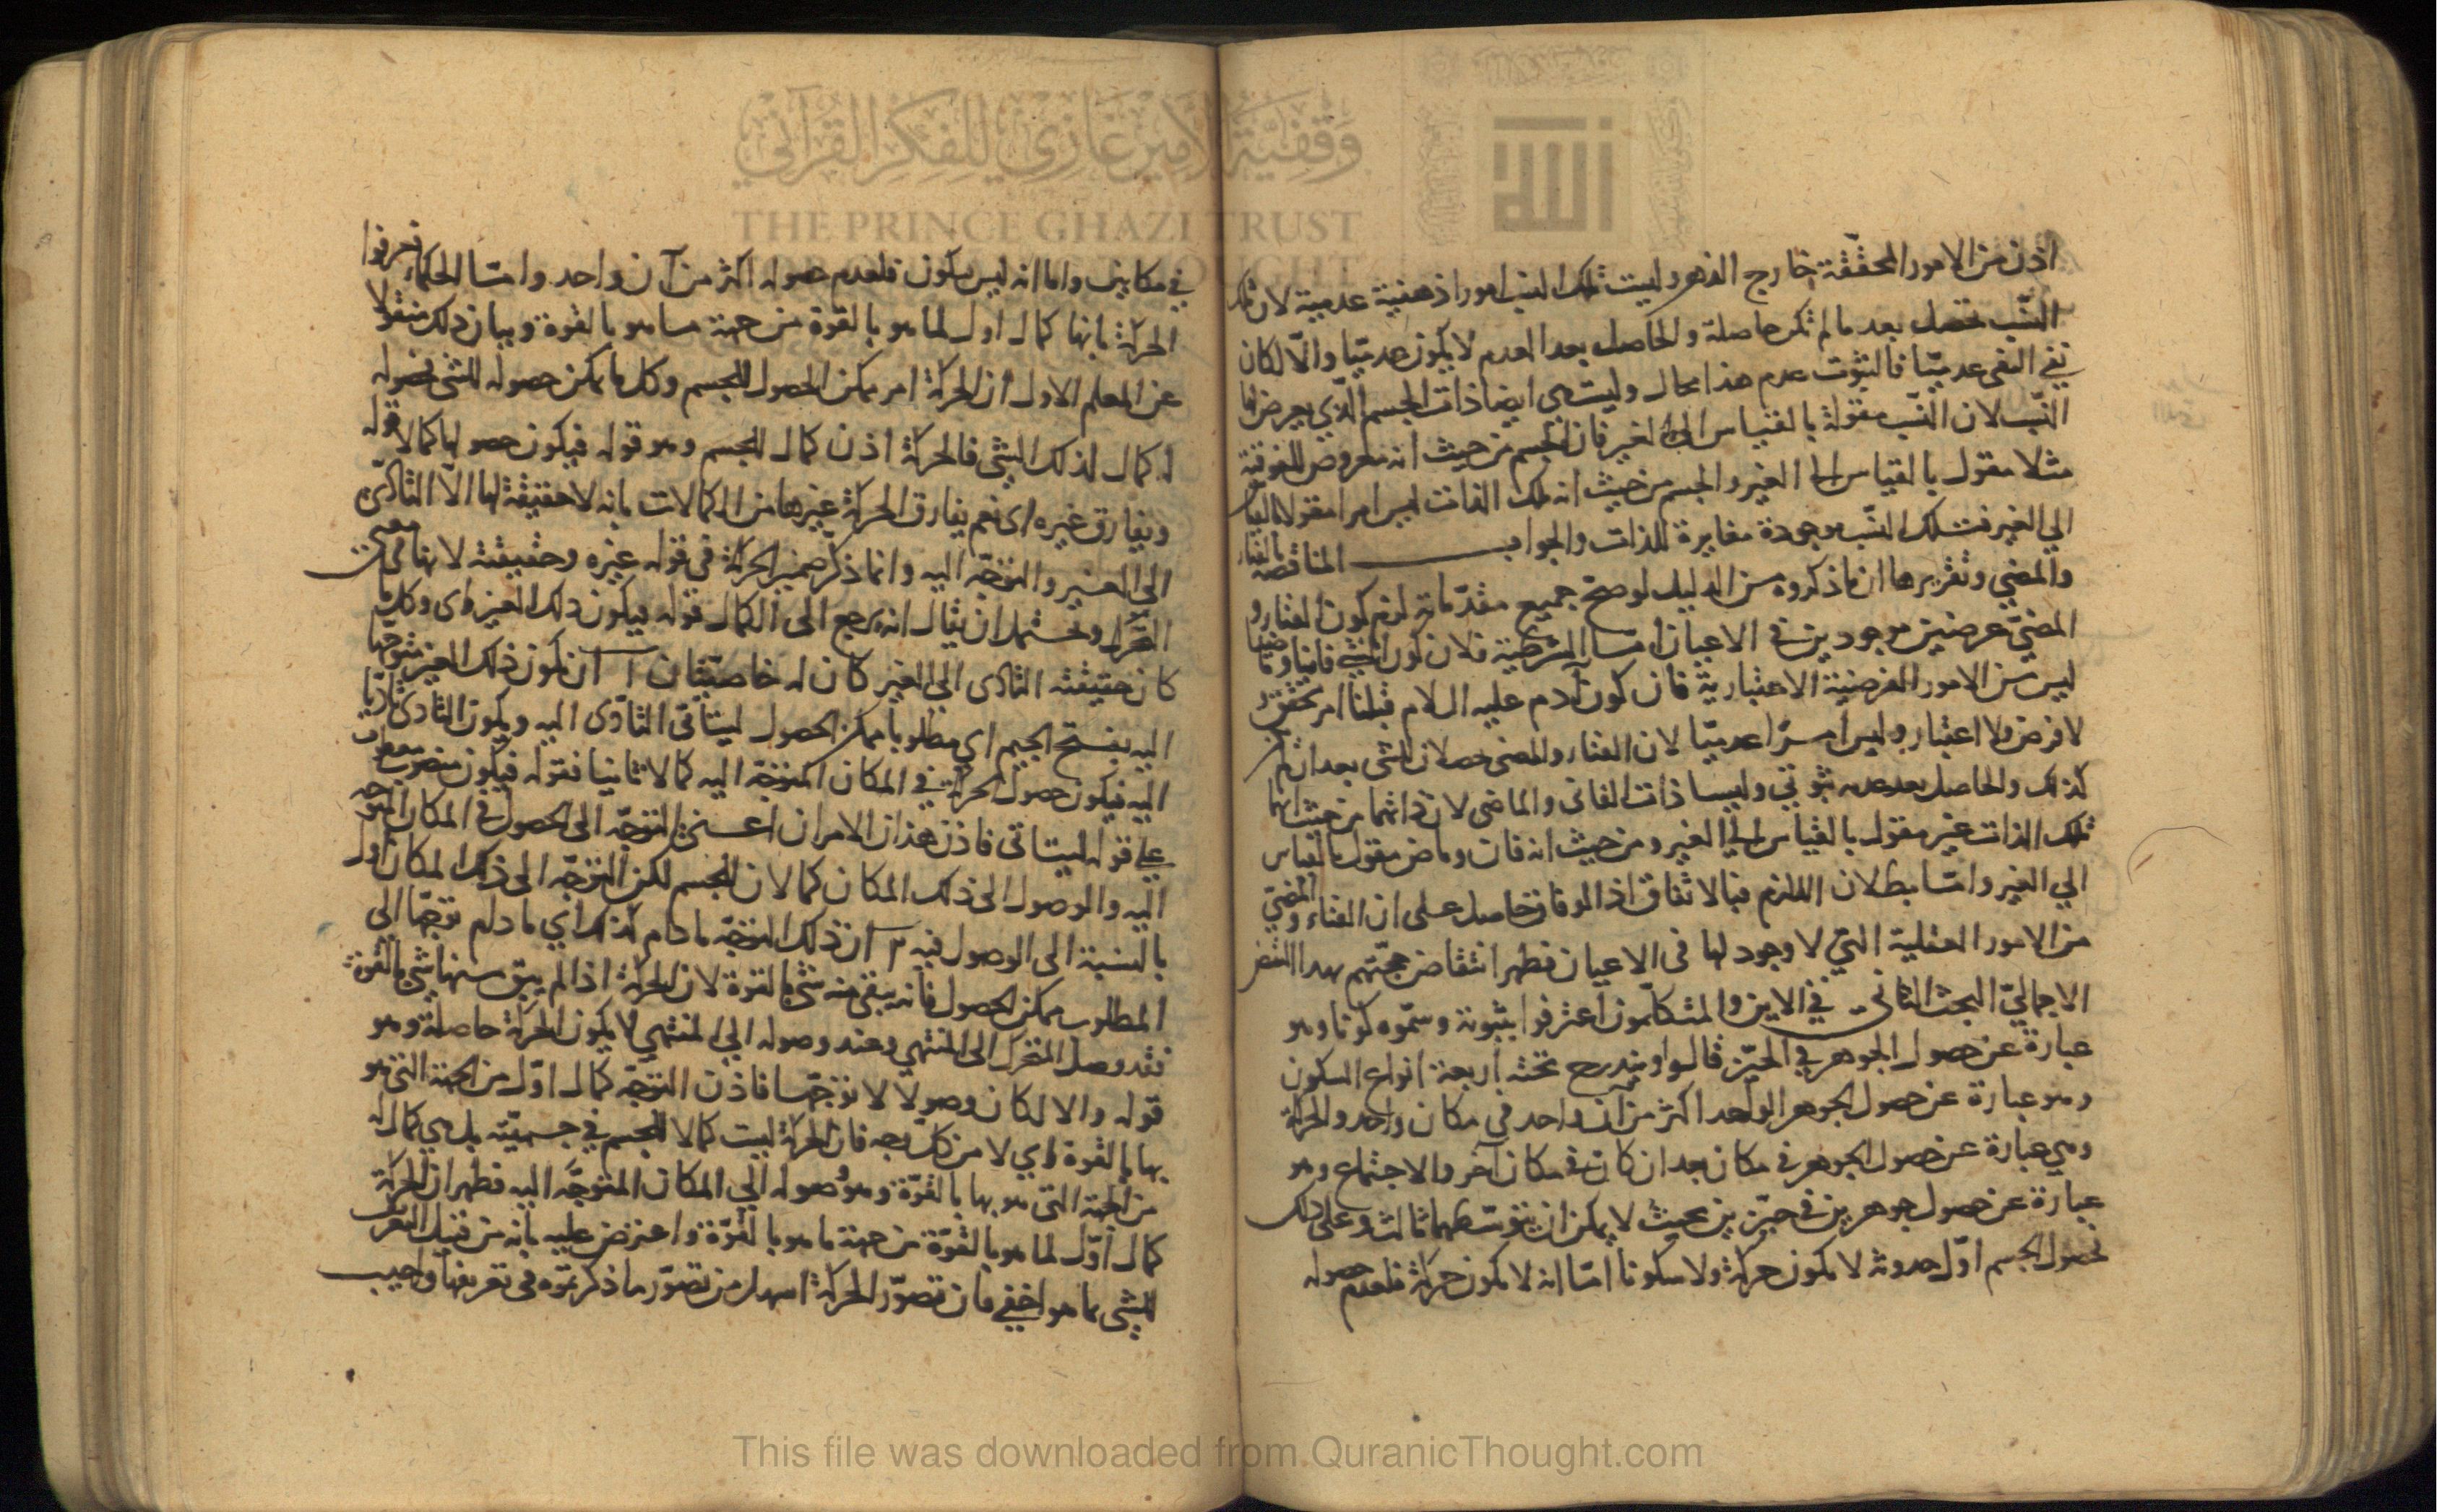 اذن من الامور المحققة خارج الذهن وليست تلك النسب امورا ذهنية عدمية لان تلك
النسب تحصل بعد ما لم تكن حاصلة والحاصل بعد العدم لا يكون عدميا والا لكان
نفي النفي عدميا فالثبوت عدم هذا محال وليست هي ايضا ذات الجسم الذي يعرض لها
النسب لان النسب مقولة بالقياس الى الغير فان الجسم من حيث انه معروض للفوقية
مثلا مقول بالقياس الى الغير والجسم من حيث انه تلك الذات ليس امرا مقولا بالقياس
الي الغير فتلك النسب موجودة مغايرة للذات والجواب المناقضة بالفناء
والمضي وتقريرها ان ما ذكروه من الدليل لو صح جميع مقدماته لزم كون الفناء و
المضي عرضين موجودين في الاعيان امتا الشرطية فلان كون الشي فانيا وماضيا
ليس من الامور الفرضية الاعتبارية فان كون آدم عليه السلام قبلنا امر محقق و
لا فرض ولا اعتبار وليس امرا عدميا لان الفناء والمضي حصلا للشي بعد ان لم
كذلك والحاصل بعد عدمه ثبوتي وليسا ذات الفاني والماضي لان ذاتهما من حيث انهما
تلك الذات غير مقول بالقياس الي الغير ومن حيث انه فان وماض مقول بالقياس
الي الغير وامتا بطلان اللازم فبالاتفاق اذ الوفاق حاصل على ان الفناء والمضي
من الامور العقلية التي لا وجود لها في الاعيان فظهر انتقاض حجتهم بهذا النقض
الاجمالي البحث الثاني في الاين والمتكلمون اعترفوا بثبوته وسموه كونا وهو
عبارة عن حصول الجوهر في الحيز قالوا ويندرج تحته اربعة انواع السكون
وهو عبارة عن حصول الجوهر الواحد اكثر من آن واحد في مكان واحد والحركة
وهي عبارة عن حصول الجوهر في مكان بعد ان كان في مكان آخر والاجتماع وهو
عبارة عن حصول جوهرين في حيزين بحيث لا يمكن ان يتوسطهما ثالث وعلى ذلك
فحصول الجسم اول حدوثه لا يكون حركة ولا سكونا امتا انه لا يكون حركة فلعدم حصوله
في مكانين واما انه ليس بسكون فلعدم حصوله اكثر من آن واحد وامتا الحكماء فعرفوا
الحركة بانها كمال اول لما هو بالقوة من جهة ما هو بالقوة وبيان ذلك منقولا
عن المعلم الاول ان الحركة امر ممكن الحصول للجسم وكل ما يمكن حصوله للشي فحصوله
له كمال لذلك الشي فالحركة اذن كمال للجسم وهو قوله فيكون حصولها كمالا قوله
ويفارق غيره اي نعم يفارق الحركة غيرها من الكمالات بانه لا حقيقة لها الا التأدي
الى الغير والتوجه اليه وانما ذكر ضمير الحركة في قوله غيره وحقيقته لانها في معنى
التحرك ويحتمل ان يقال انه يرجع الى الكمال قوله فيكون ذلك الغير اي وكل ما
كان حقيقته التادى الي الغير كان له خاصيتان ا ان يكون ذلك الغير متوجها
اليه بفتح الجيم اي مطلوبا ممكن الحصول ليتأتى التأدي اليه ويكون التادي تاديا
اليه فيكون حصول الحركة في المكان المتوجه اليه كمالا ثانيا فقوله فيكون منصوب معطوف
على قوله ليتاتى فاذن هذان الامران اعني التوجه الى الحصول في المكان المتوجه
اليه والوصول الى ذلك المكان كمالان للجسم لكن التوجه الى ذلك المكان اول
بالنسبة الى الوصول فيه ٢ ان ذلك التوجه ما دام كذلك اي ما دام توجها الى
المطلوب ممكن الحصول فانه يبقى منه شي بالقوة لان الحركة اذا لم يبق منها شي بالقوة
فقد وصل المتحرك الى المنتهي وعند وصوله الي المنتهي لا يكون الحركة حاصلة وهو
قوله والا لكان وصولا لا توجها فاذن التوجه كمال اول من الجهة التي هو
بها بالقوة اي لا من كل وجه فان الحركة ليست كمالا للجسم في جسميته بل هي كمال له
من الجهة التي هو بها بالقوة وهو وصوله الي المكان المتوجه اليه فظهر ان الحركة
كمال اول لما هو بالقوة من جهة ما هو بالقوة واعترض عليه بانه من قبيل التعريف
للشي بما هو اخفي فان تصور الحركة اسهل من تصور ما ذكرتموه في تعريفها واجيب
وقفية الأمير غازي للفكر القرآني
THE PRINCE GHAZI TRUST
This file was downloaded from QuranicThought.com